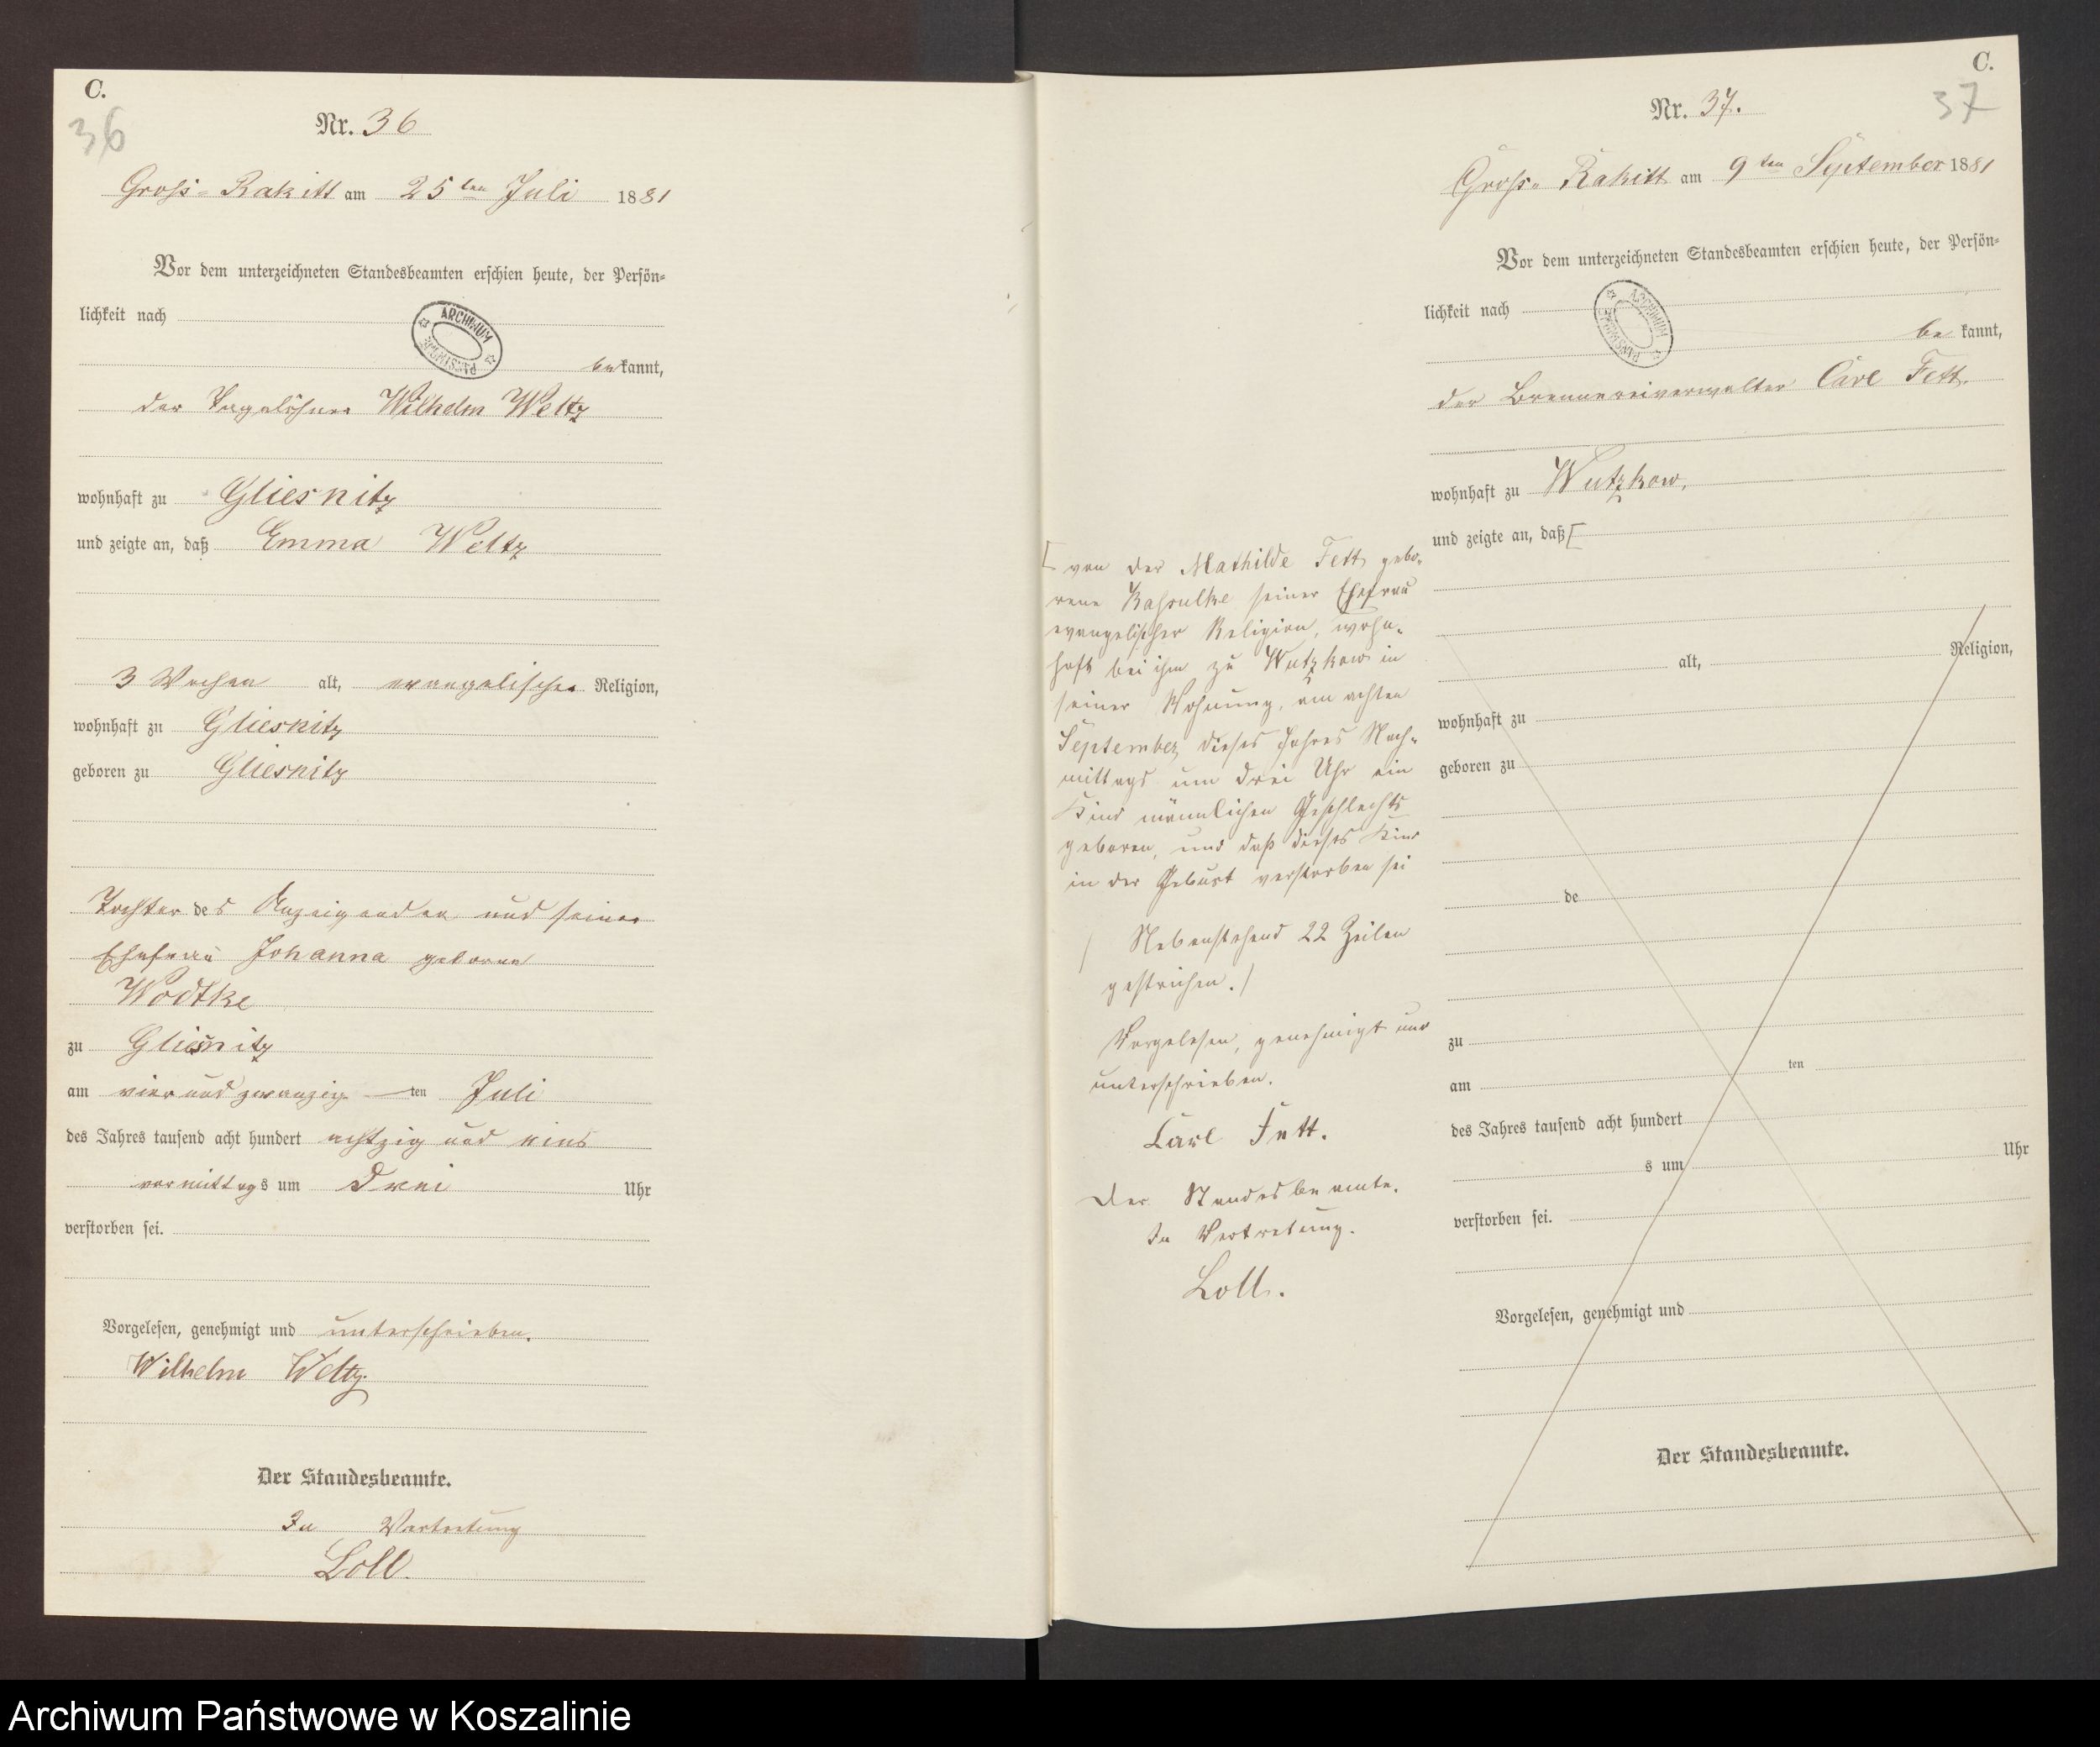 C.
36
Nr. 36
Groß-Rakitt am 25ten Juli 1881
Vor dem unterzeichneten Standesbeamten erschien heute, der Persön-
lichkeit nach
ARCHIWUM PAŃSTWOWE
bekannt,
der Tagelöhner Wilhelm Weltz
wohnhaft zu Gliesnitz
und zeigte an, daß Emma Weltz
3 Wochen alt, evangelischer Religion,
wohnhaft zu Gliesnitz
geboren zu Gliesnitz
Tochter des Anzeigenden und seiner
Ehefrau Johanna geborene
Wodtke
zu Gliesnitz
am vier und zwanzig ten Juli
des Jahres tausend acht hundert achtzig und eins
vormittags um drei Uhr
verstorben sei.
Vorgelesen, genehmigt und unterschrieben.
Wilhelm Weltz
Der Standesbeamte.
In Vertretung
Loll.
C.
37
Nr. 37.
Groß-Rakitt am 9ten September 1881
Vor dem unterzeichneten Standesbeamten erschien heute, der Persön-
lichkeit nach
ARCHIWUM PAŃSTWOWE
be kannt,
der Brennereiverwalter Carl Fett.
wohnhaft zu Wutzkow,
und zeigte an, daß [
[ von der Mathilde Fett gebo-
rene seiner Ehefrau
evangelischer Religion, wohn-
haft bei ihm zu Wutzkow in
seiner Wohnung, am achten
September dieses Jahres Nach-
mittags um drei Uhr ein
Kind männlichen Geschlechts
geboren, und daß dieses Kind
in der Geburt verstorben sei
/ Nebenstehend 22 Zeilen
gestrichen. /
Vorgelesen, genehmigt und
unterschrieben.
Carl Fett.
Der Standesbeamte.
In Vertretung.
Loll.
alt, Religion,
wohnhaft zu
geboren zu
de
zu
am ten
des Jahres tausend acht hundert
s um Uhr
verstorben sei.
Vorgelesen, genehmigt und
Der Standesbeamte.
Archiwum Państwowe w Koszalinie